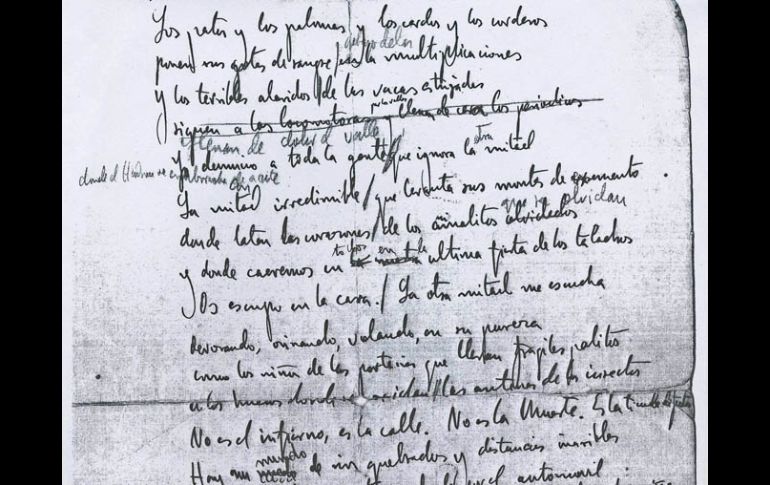 Los patos y los palomas y los cerdos y los corderos
debajo de las
ponen sus gotas de sangre la multiplicaciones
y los terribles alaridos / de las vacas estrujadas
siguen a las locomotoras y llena de los periodicos
llenan de dolor el valle
donde el Hudson se emborracha de aceite
yo denuncio a toda la gente / que ignora la otra mitad
La mitad irredimible / que levanta sus montes de cemento
donde laten los corazones / de los animalitos olvidados
que se olvidan
y donde caeremos todos en la ultima fiesta de los taladros
Os escupo en la cara. / La otra mitad me escucha
devorando, orinando, volando, en su pureza
como los niños de las porterias que llevan fragiles palitos
a los huecos donde se oxidan / las antenas de los insectos
No es el infierno, es la calle. No es la Muerte. Es la tienda de frutas
Hay un mundo de rios quebrados y distancias
el automovil